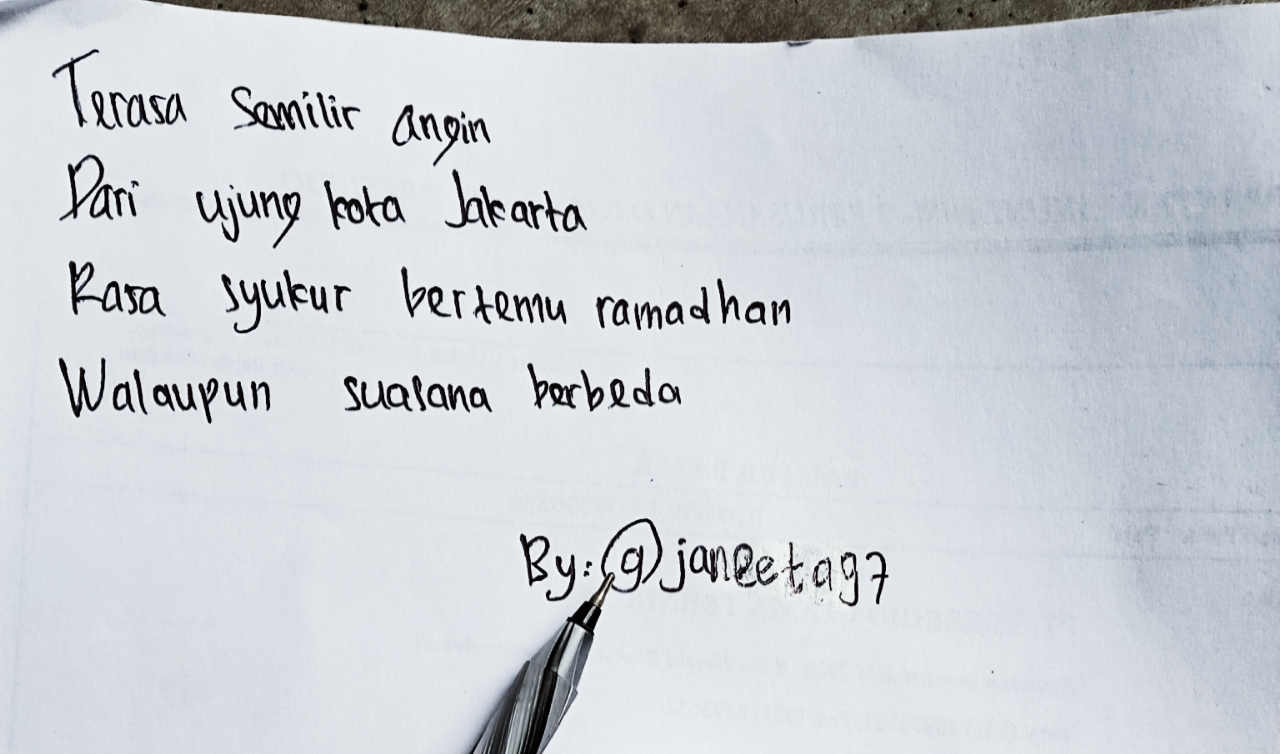 Terasa Semilir angin
Dari ujung kota Jakarta
Rasa syukur bertemu ramadhan
Walaupun suasana berbeda
By: @janeeta97